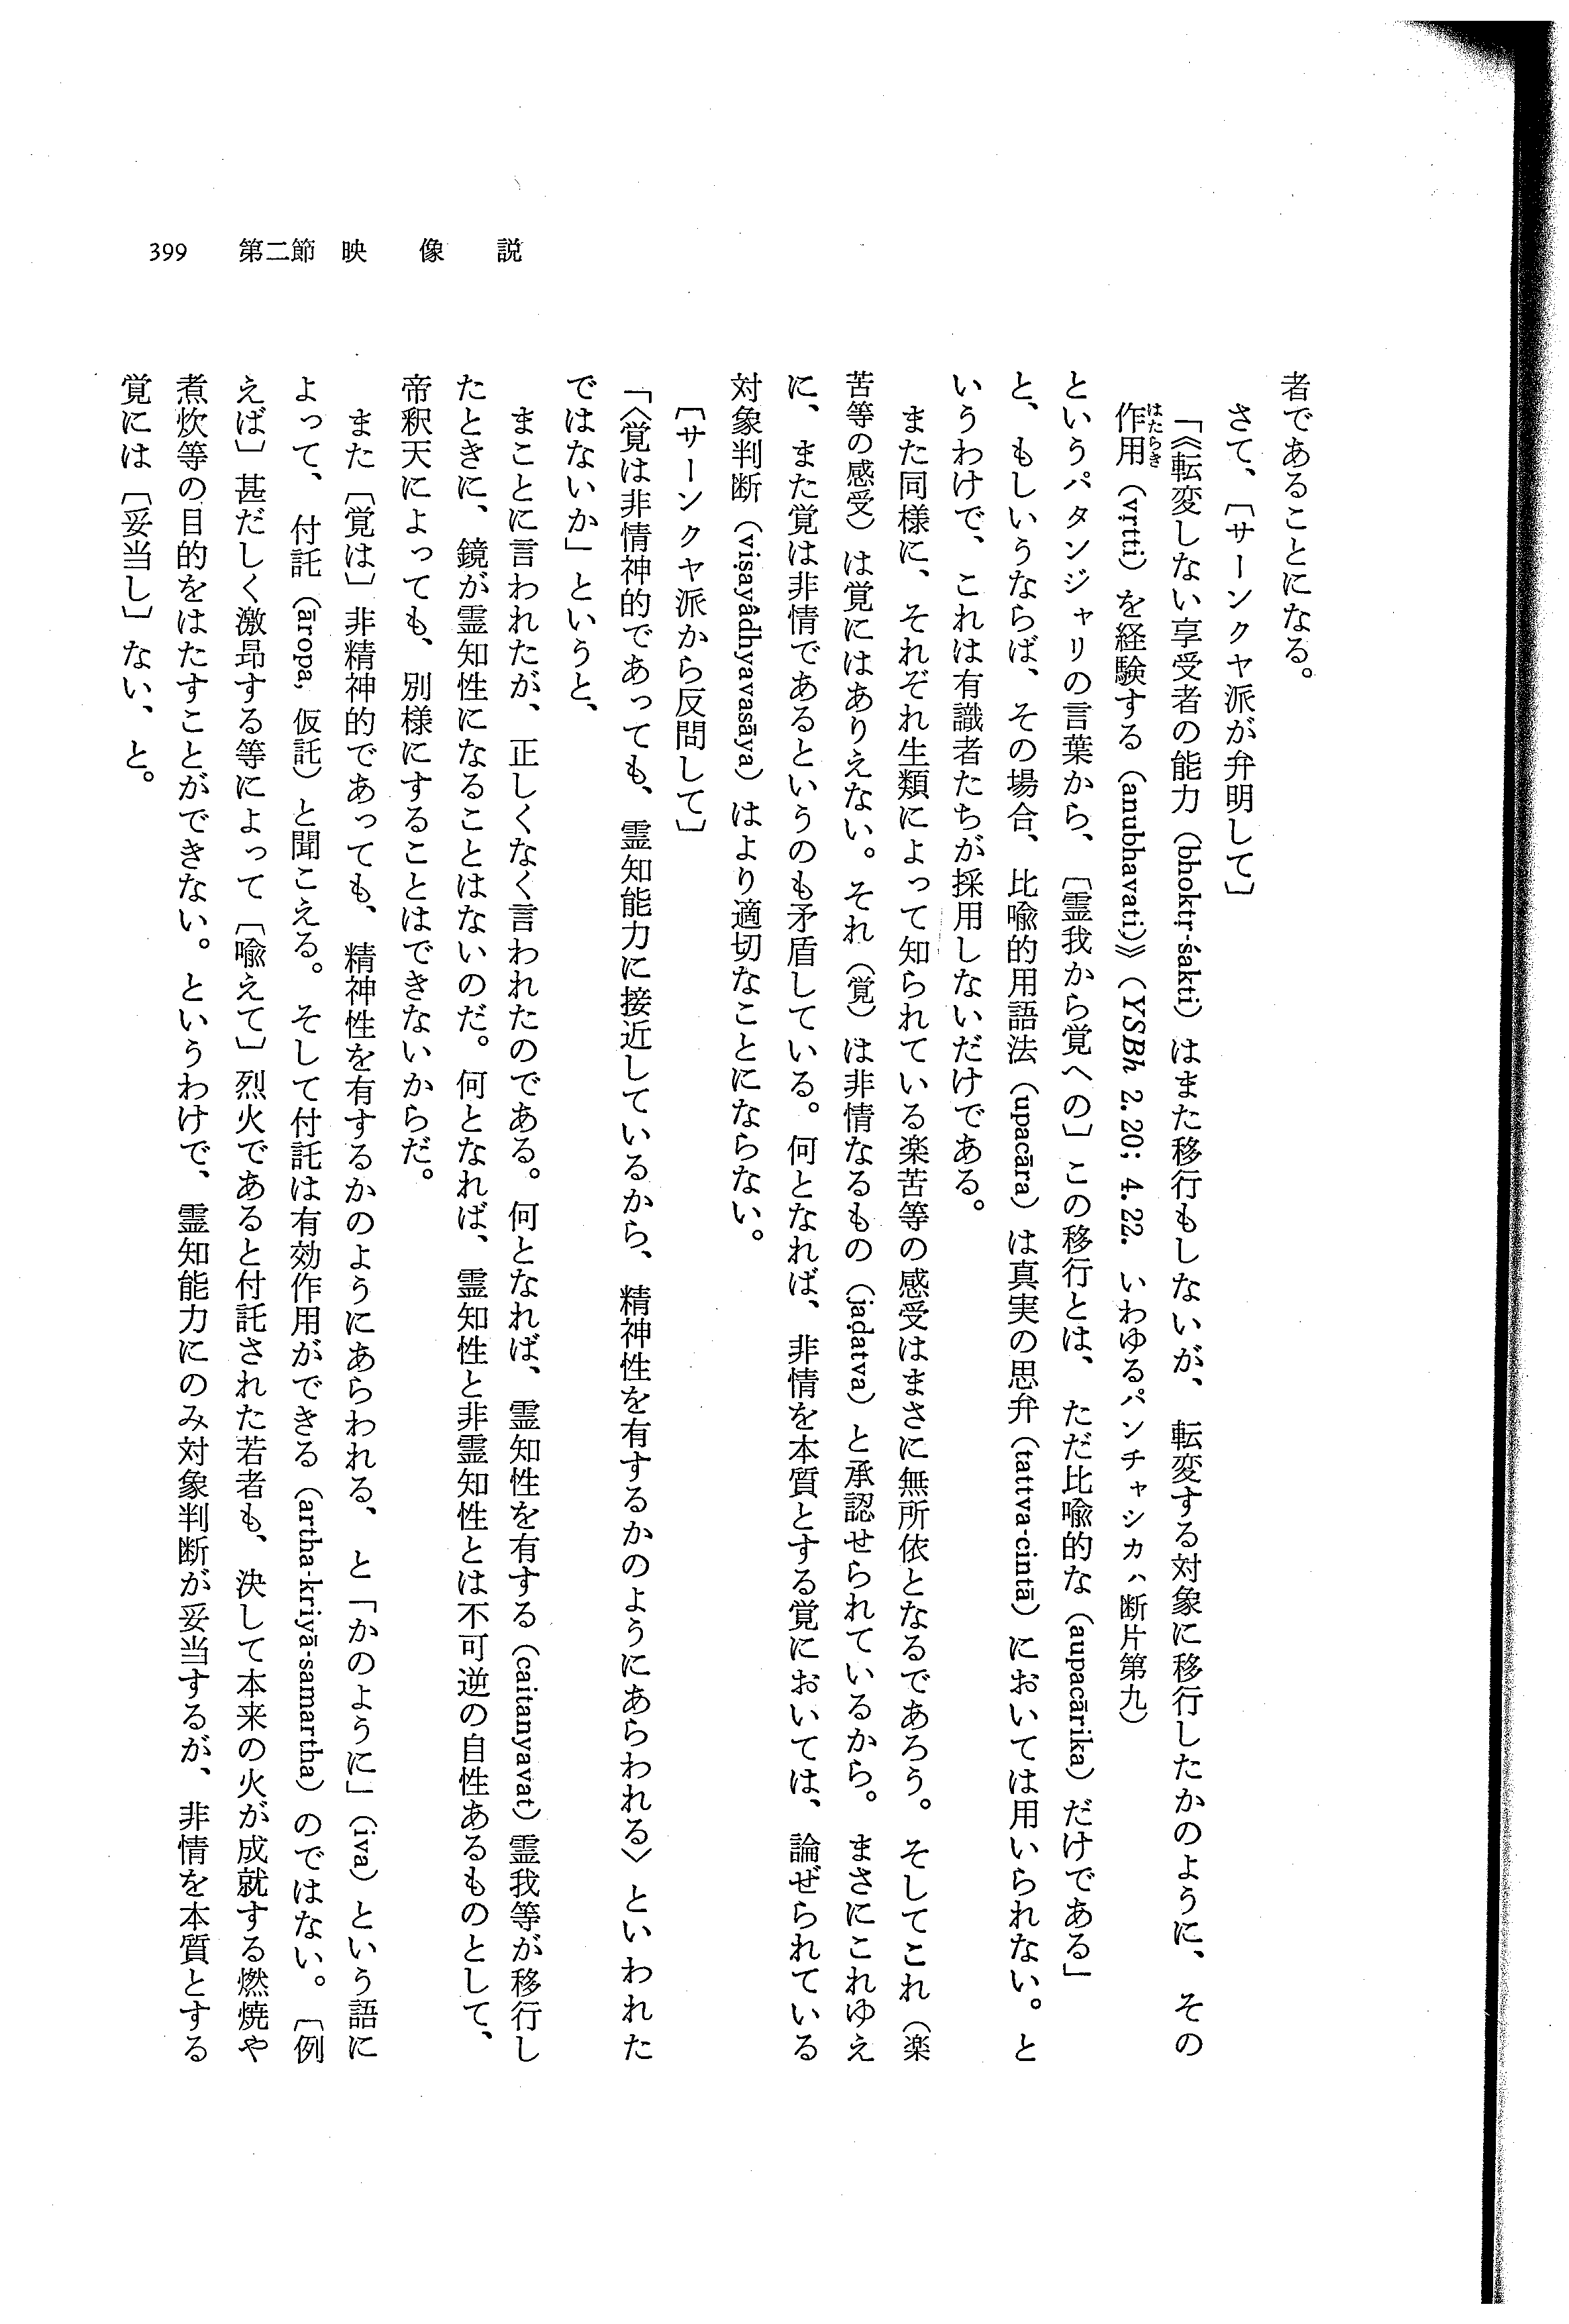 399　第二節　映像説
者であることになる。
さて、〔サーンクヤ派が弁明して〕
「《転変しない享受者の能力（bhoktṛ-śakti）はまた移行もしないが、転変する対象に移行したかのように、その
作用（vṛtti）を経験する（anubhavati）》（YSBh 2. 20; 4. 22. いわゆるパンチャシカハ断片第九）
はたらき
というパタンジャリの言葉から、〔霊我から覚への〕この移行とは、ただ比喩的な（aupacārika）だけである」
と、もしいうならば、その場合、比喩的用語法（upacāra）は真実の思弁（tattva-cintā）においては用いられない。と
いうわけで、これは有識者たちが採用しないだけである。
また同様に、それぞれ生類によって知られている楽苦等の感受はまさに無所依となるであろう。そしてこれ（楽
苦等の感受）は覚にはありえない。それ（覚）は非情なるもの（jaḍatva）と承認せられているから。まさにこれゆえ
に、また覚は非情であるというのも矛盾している。何となれば、非情を本質とする覚においては、論ぜられている
対象判断（viṣayâdhyavasāya）はより適切なことにならない。
〔サーンクヤ派から反問して〕
「〈覚は非情神的であっても、霊知能力に接近しているから、精神性を有するかのようにあらわれる〉といわれた
ではないか」というと、
まことに言われたが、正しくなく言われたのである。何となれば、霊知性を有する（caitanyavat）霊我等が移行し
たときに、鏡が霊知性になることはないのだ。何となれば、霊知性と非霊知性とは不可逆の自性あるものとして、
帝釈天によっても、別様にすることはできないからだ。
また〔覚は〕非精神的であっても、精神性を有するかのようにあらわれる、と「かのように」（iva）という語に
よって、付託（āropa, 仮託）と聞こえる。そして付託は有効作用ができる（artha-kriyā-samartha）のではない。〔例
えば〕甚だしく激昂する等によって〔喩えて〕烈火であると付託された若者も、決して本来の火が成就する燃焼や
煮炊等の目的をはたすことができない。というわけで、霊知能力にのみ対象判断が妥当するが、非情を本質とする
覚には〔妥当し〕ない、と。